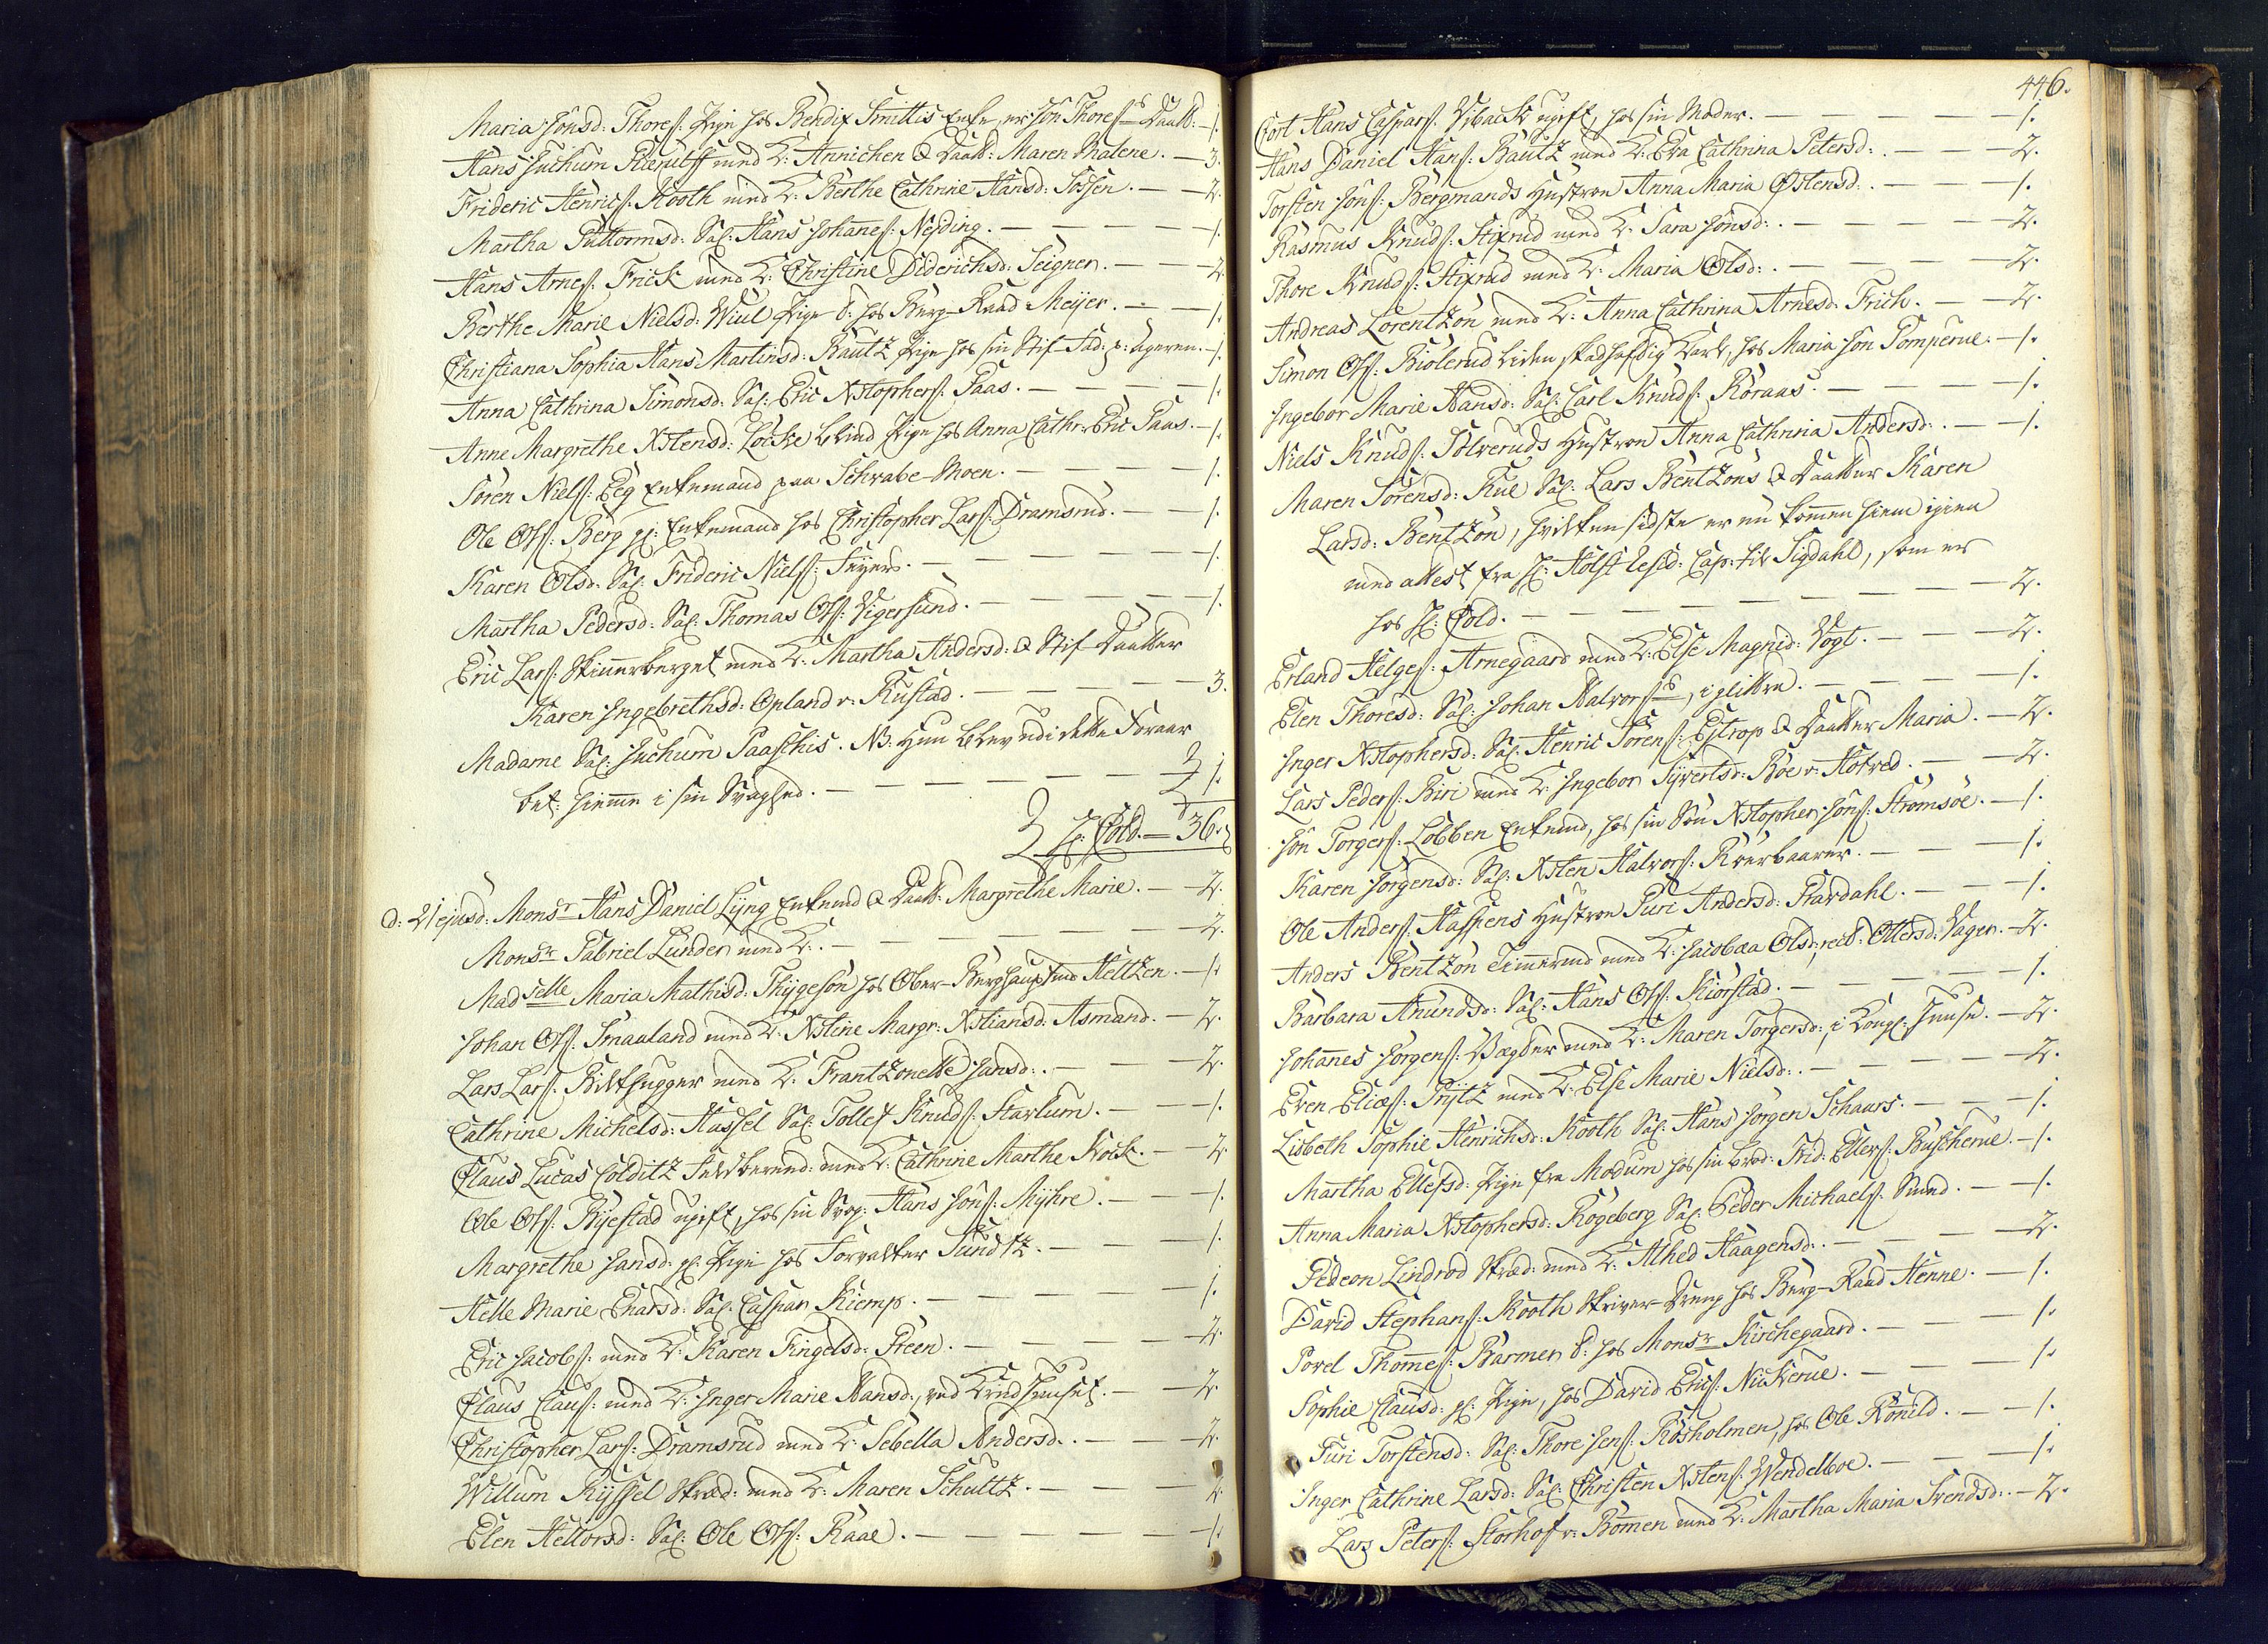 Maria Jonsd: Thores: Pige hos Bendix Smittis Enke, er Jon Thoress Daatt: — 1.
Hans Juchum Pharulff med K: Annichen & Daatt: Maren Malene. — 3.
Frideric Henrics: Kooth med K: Berthe Cathrine Hansd: Fossen. — — 2.
Martha Guttormsd: Sal: Hans Johanes: Nesding. — — — — — 1.
Hans Arnes: Frick med K: Christine Diderichsd: Seigner. — — — 2.
Berthe Marie Nielsd: Wiul Pige t: hos Berg-Raad Meyer. — — — 1.
Christiana Sophia Hans Martinsd: Bautz Pige hos sin Stif-Fad: p: Ageren. — 1.
Anna Cathrina Simonsd: Sal: Eric Xstophers: Paas. — — — — 1.
Anne Margrethe Xstensd: Locke blind Pige hos Anna Cathr: Eric Paas. — 1.
Søren Niels: Eeg Enkemand paa Schwabe-Moen. — — — — 1.
Ole Ols: Berg gl: Enkemand hos Christopher Lars: Dramsrud. — — 1.
Karen Olsd: Sal: Frideric Niels: Feyers. — — — — — 1.
Martha Pedersd: Sal: Thomas Ols: Vigersund. — — — — — 1.
Eric Lars: Skinnerberget med K: Martha Andersd: & Stif-Daatter
Karen Ingebrethsd: Opland v: Rustad. — — — — — 3.
Madame Sal: Juchum Paaschis. NB: Hun blev udi dette Foraar
bet: hiemme i sin Svaghed. — — — — — — 1.
Hr: Cold. — 36.
d: 21 ejusd: Monsr Hans Daniel Lyng Enkemd & Daatt: Margrethe Marie. — 2.
Monsr Gabriel Lunder med K: — — — — — — — 2.
Madselle Maria Mathisd: Thygeson hos Ober-Berghauptmd Heltzen. — 1.
Johan Ols: Smaaland med K: Xstine Margr: Xstiansd: Asmand. — 2.
Lars Lars: Bilthugger med K: Frantzonette Jansd: — — — 2.
Cathrine Michelsd: Hassel Sal: Tollef Knuds: Starlum. — — — 1.
Claus Lucas Colditz Feldbered: med K: Cathrine Marthe Kock. — 2.
Ole Ols: Byestad ugift, hos sin Svog: Hans Jons: Myhre. — — — 1.
Margrethe Jansd: gl: Pige hos Forvalter Sundtz. — — — — 1.
Helle Marie Enarsd: Sal: Caspar Kiemp. — — — — — 1.
Eric Jacobs: med K: Karen Fingelsd: Steen. — — — — — 2.
Claus Claus: med K: Inger Marie Hansd:, ved Lindhuuset. — — 2.
Christopher Lars: Dramsrud med K: Sebella Andersd: — — — 2.
Willum Kyssel Skræd: med K: Maren Schultz. — — — — 2.
Elen Hellorsd: Sal: Ole Ols: Raae. — — — — — — 1.
446.
Cort Hans Caspars: Viback ugift, hos sin Moder. — — — — — 1.
Hans Daniel Hans: Bautz med K: Eva Cathrina Petersd: — — — 2.
Torsten Jons: Bergmands Hustroe Anna Maria Østensd: — — — 1.
Rasmus Knuds: Stixrud med K: Sara Jonsd: — — — — — 2.
Thore Knuds: Stixrud med K: Maria Olsd: — — — — — 2.
Andreas Lorentzon med K: Anna Cathrina Arnesd: Frich. — — 2.
Simon Ols: Biølerud liden skadhafdig Karl, hos Maria Jon Pomperue. — 1.
Ingebor Marie Hansd: Sal: Carl Knuds: Røraas. — — — — 1.
Niels Knuds: Sølveruds Hustroe Anna Cathrina Andersd: — — 1.
Maren Sørensd: Kue Sal: Lars Bentzons & Daatter Karen
Larsd: Bentzon, hvilken sidste er nu kommen hiem igien
med attest fra Hr: Holst resid: Cap: til Sigdahl, som er
hos Hr: Cold. — — — — — — — — — 2.
Erland Helges: Arnegaard med K: Else Magnid: Vogt. — — — 2.
Elen Thoresd: Sal: Johan Halvorss, i glittre. — — — — 1.
Inger Xstophersd: Sal: Henric Sørens: Estrop & Daatter Maria. — 2.
Lars Peders: Biri med K: Ingebor Syvertsd: Bøe v: Hotved. — — 2.
Jon Torgers: Lobben Enkemd, hos sin Søn Xstopher Jons: Strømsøe. — 1.
Karen Jørgensd: Sal: Xsten Halvors: Kierbaarer. — — — — 1.
Ole Anders: Haspens Hustroe Guri Andersd: Skardahl. — — — 1.
Anders Bentzon Timmermd med K: Jacobæa Olsd: rect: Ottersd: Vager. — 2.
Barbara Anundsd: Sal: Hans Ols: Kiørstad. — — — — — 1.
Johannes Jørgens: Vægter med K: Maren Torgersd:, i Kongs: Huuse. — 2.
Even Elias: Prytz med K: Else Marie Nielsd: — — — — — 2.
Lisbeth Sophie Henrichsd: Kooth Sal: Hans Jørgen Schaurs. — — — 1.
Martha Ellefsd: Pige fra Modum hos sin Brod: Frid: Ellefs: Buscherue. — 1.
Anna Maria Xstophersd: Rogeberg Sal: Peder Michaels: Smed. — — 1.
Gedeon Lindrod Skræd: med K: Alhed Haagensd: — — — — 2.
David Stephans: Kooth Skriver-Dreng hos Berg-Raad Henne. — 1.
Povel Thommes: Barmer t: hos Monsr Kirchegaard. — — — 1.
Sophie Clausd: gl: Pige, hos David Erics: Nickerue. — — — 1.
Turi Torstensd: Sal: Thore Jens: Røsholmen, hos Ole Rønild. — — 1.
Inger Cathrine Larsd: Sal: Christen Xstens: Wendelboe. — — — 1.
Lars Peters: Storhof v: Bomen med K: Martha Maria Svendsd: — 2.